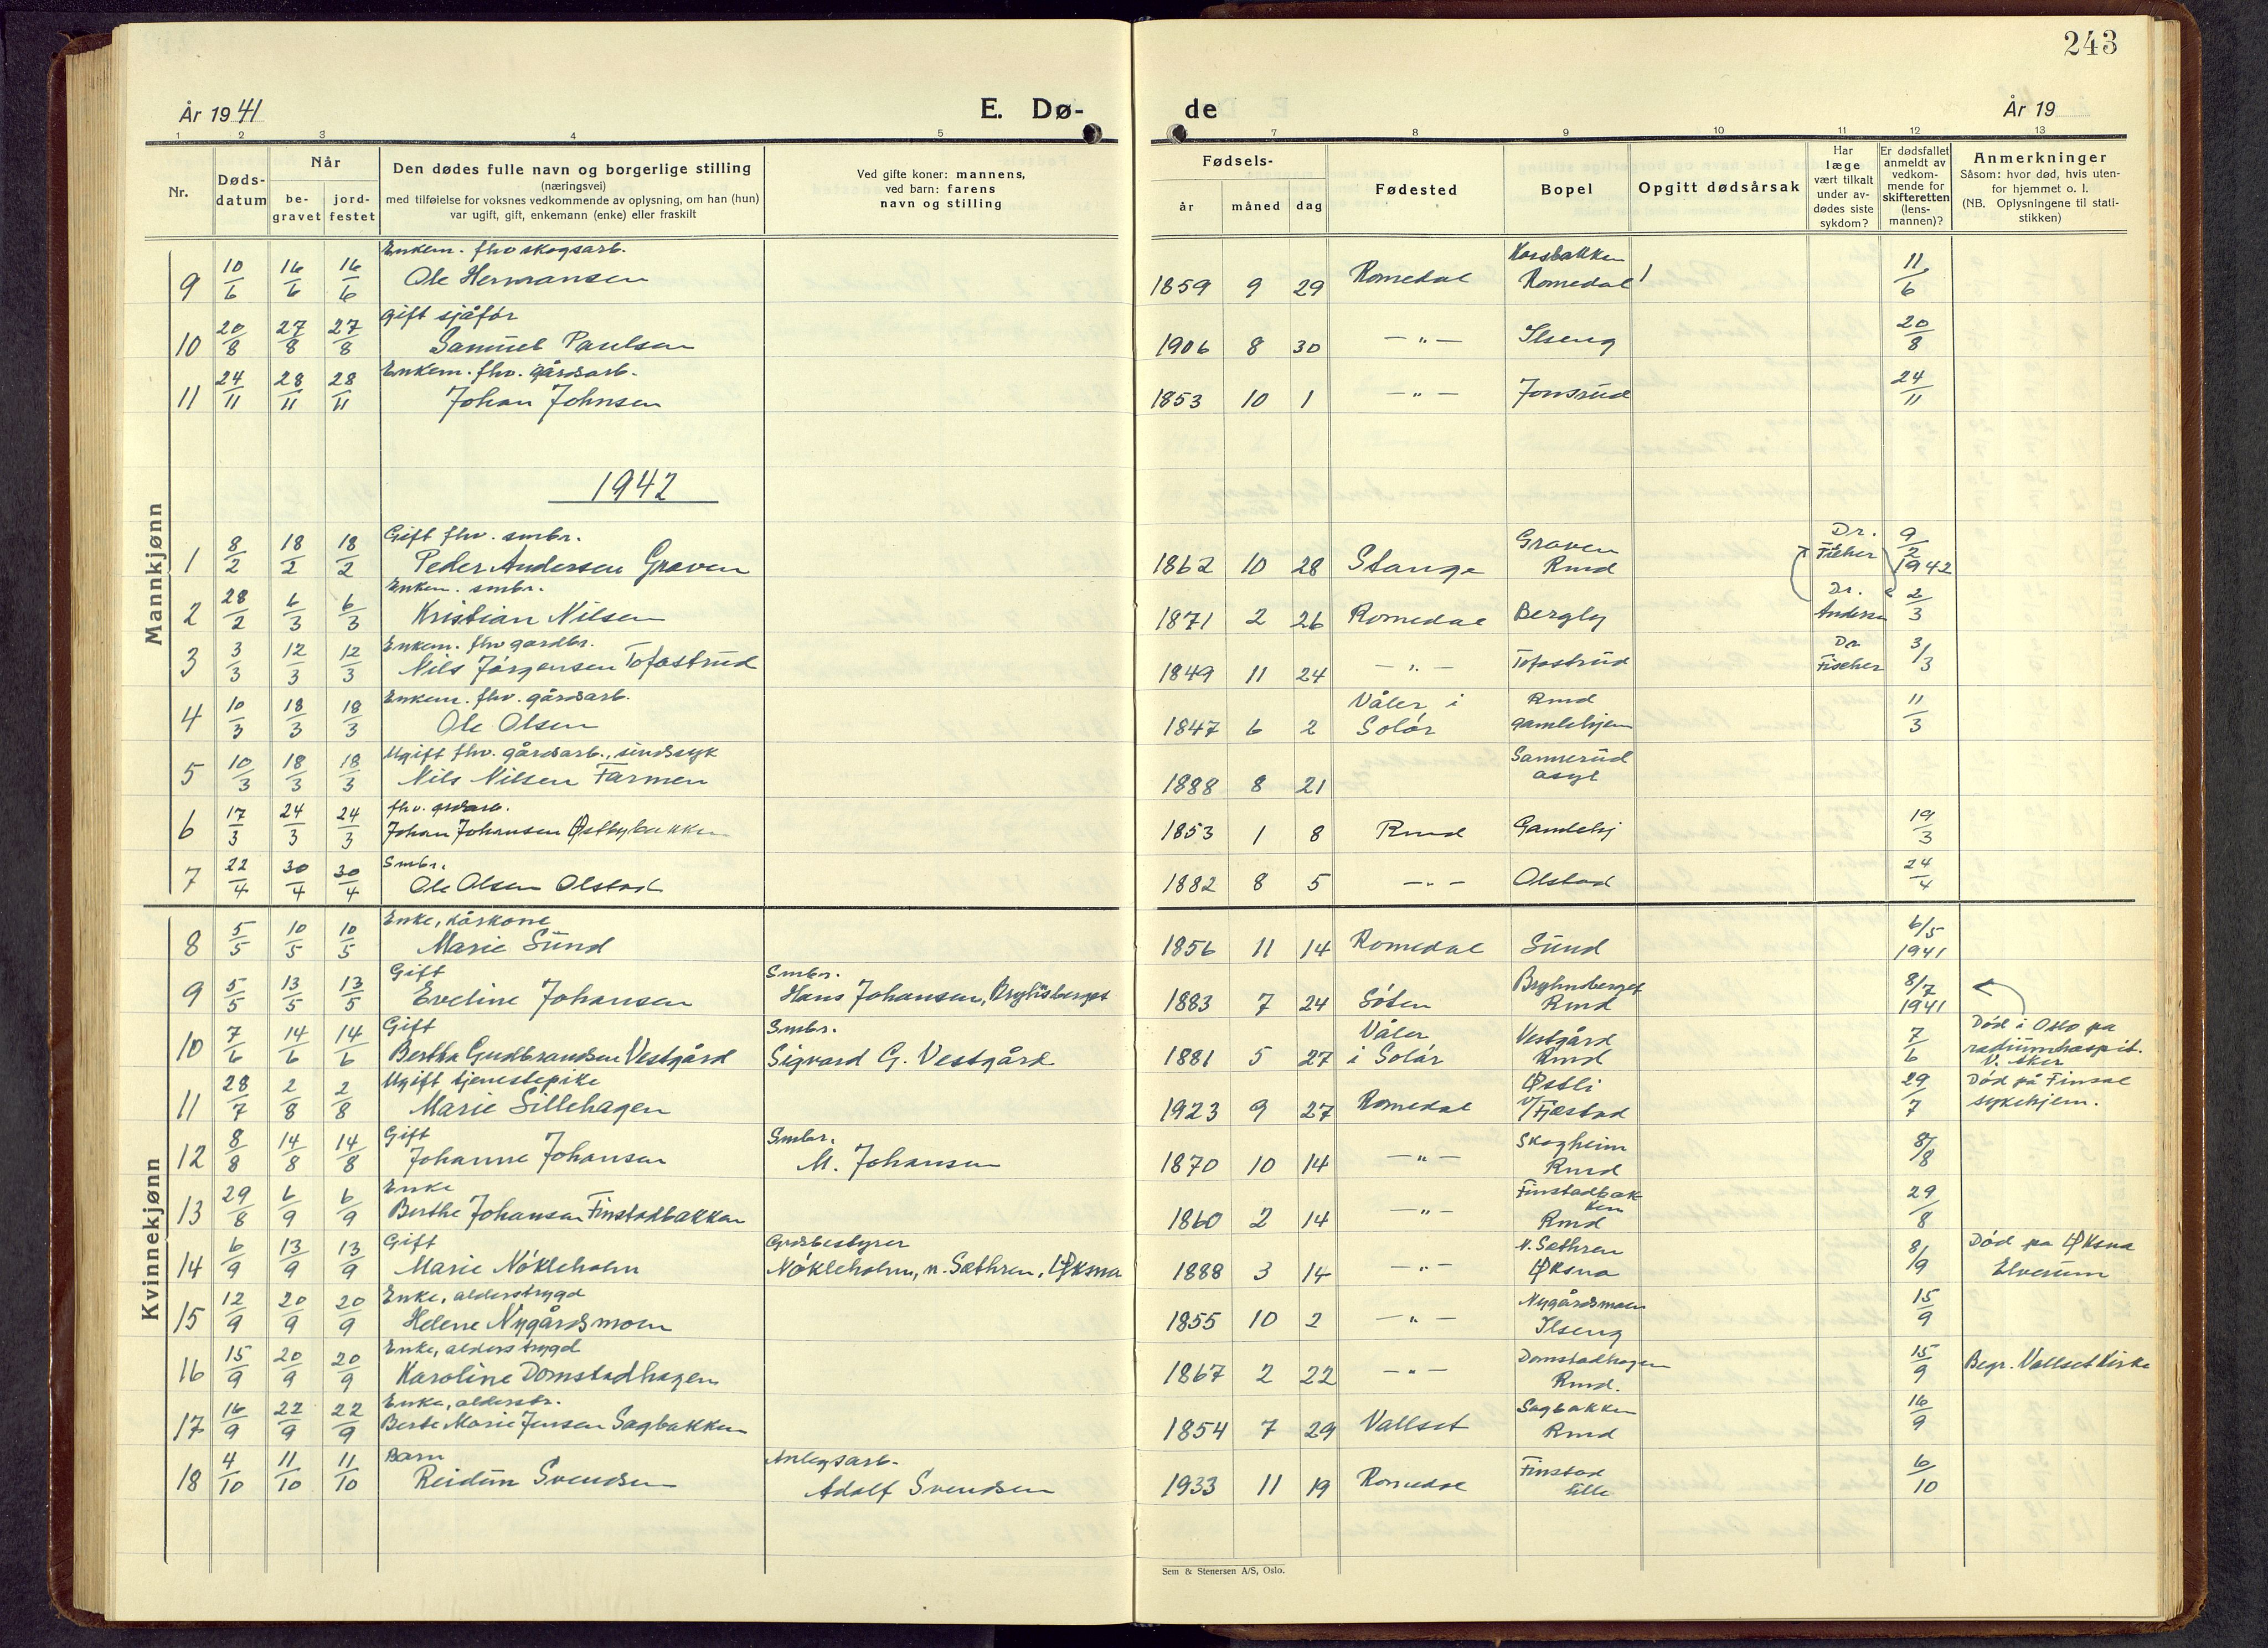 243
År 1941
E. Dø-
de
År 19
1 2 3 4 5
7 8 9 10 11 12 13
Nr.
Døds-
datum
Når
be-
gravet
jord-
festet
Den dødes fulle navn og borgerlige stilling
(næringsvei)
med tilføielse for voksnes vedkommende av oplysning, om han (hun)
var ugift, gift, enkemann (enke) eller fraskilt
Ved gifte koner: mannens,
ved barn: farens
navn og stilling
Fødsels-
år måned dag
Fødested
Bopel
Opgitt dødsårsak
Har
læge
vært tilkalt
under av-
dødes siste
sykdom?
Er dødsfallet
anmeldt av
vedkom-
mende for
skifteretten
(lens-
mannen)?
Anmerkninger
Såsom: hvor død, hvis uten-
for hjemmet o. l.
(NB. Oplysningene til stati-
stikken)
Mannkjønn
Enkem. fhv skogsarb. Korsbakken
9 10/6 16/6 16/6 Ole Hermansen 1859 9 29 Romedal Romedal 11/6
gift sjåfør
10 20/8 27/8 27/8 Samuel Paulsen 1906 8 30 — „ — Ilseng 20/8
Enkem. fhv. gårdsarb.
11 24/11 28/11 28/11 Johan Johnsen 1853 10 1 — „ — Jonsrud 24/11
1942
Gift fhv. smbr. Graven Dr.
1 8/2 18/2 18/2 Peder Andersen Graven 1862 10 28 Stange Rmd Fischer 9/2 1942
Enkem. smbr. Dr.
2 28/2 6/3 6/3 Kristian Nilsen 1871 2 26 Romedal Bergly Andersen 2/3
Enkem. fhv gardbr. Dr
3 3/3 12/3 12/3 Nils Jørgensen Tofastrud 1849 11 24 — „ — Tofastrud Fischer 3/3
Enkem. fhv. gårdsarb. Våler i Rmd
4 10/3 18/3 18/3 Ole Olsen 1847 6 2 Solør gamlehjem 11/3
Ugift fhv. gårdsarb., sindssyk Sannerud
5 10/3 18/3 18/3 Nils Nilsen Farmen 1888 8 21 asyl
fhv. grdsarb.
6 17/3 24/3 24/3 Johan Johansen Østbybakken 1853 1 8 Rmd Gamlehj 19/3
Smbr.
7 22/4 30/4 30/4 Ole Olsen Olstad 1882 8 5 — „ — Olstad 24/4
Kvinnekjønn
Enke, kårkone
8 5/5 10/5 10/5 Marie Sund 1856 11 14 Romedal Sund 6/5 1941
Gift Smbr. Bryhnsberget
9 5/5 13/5 13/5 Eveline Johansen Hans Johansen, Bryhnsberget 1883 7 24 Søten Rmd 8/7 1941
Gift Smbr. Våler Vestgård Død i Oslo på
10 7/6 14/6 14/6 Bertha Gudbrandsen Vestgård Sigvard G. Vestgård 1881 5 27 i Solør Rmd 7/6 radiumhospit.
V. Aker
Ugift tjenestepike Østli Død på Finsal
11 28/7 2/8 2/8 Marie Sillehagen 1923 9 27 Romedal v/Fjæstad 29/7 sykehjem.
Gift Smbr. Skogheim
12 8/8 14/8 14/8 Johanne Johansen M. Johansen 1870 10 14 — „ — Rmd 8/8
Enke Finstadbak
ken
13 29/8 6/9 6/9 Berthe Johansen Finstadbakken 1860 2 14 — „ — Rmd 29/8
Gift Grdsbestyrer N. Sæthren Død på Øksna
14 6/9 13/9 13/9 Marie Nökleholm Nökleholm, n. Sæthren, Øksna 1888 3 14 — „ — Øksna 8/9 Elverum
Enke, alderstrygd Nygårdsmoen
15 12/9 20/9 20/9 Helene Nygårdsmoen 1855 10 2 — „ — Ilseng 15/9
Enke, alderstrygd Domstadhagen
16 15/9 20/9 20/9 Karoline Domstadhagen 1867 2 22 — „ — Rmd. 15/9 Begr. Vallset kirke
Enke, alderstr. Sagbakken
17 16/9 22/9 22/9 Berte Marie Jensen Sagbakken 1854 7 29 Vallset Rmd 16/9
Barn Anlegsarb. Finstad
18 4/10 11/10 11/10 Reidun Svendsen Adolf Svendsen 1933 11 19 Romedal lille 6/10
Sem & Stenersen A/S, Oslo.